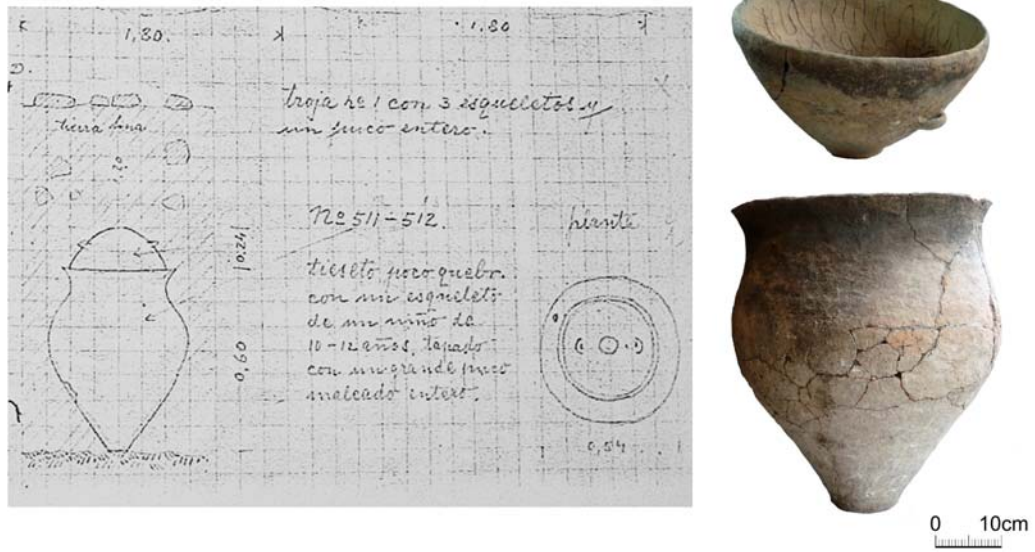 1,80.
1,80
troja nº 1 con 3 esqueletos y
un puco entero.
tierra fina
Nº 511-512.
piante
0,24
tiesto poco quebr.
con un esqueleto
de un niño de
10-12 años, tapado
con un grande puco
maleado entero.
0,60
0,54
0 10cm